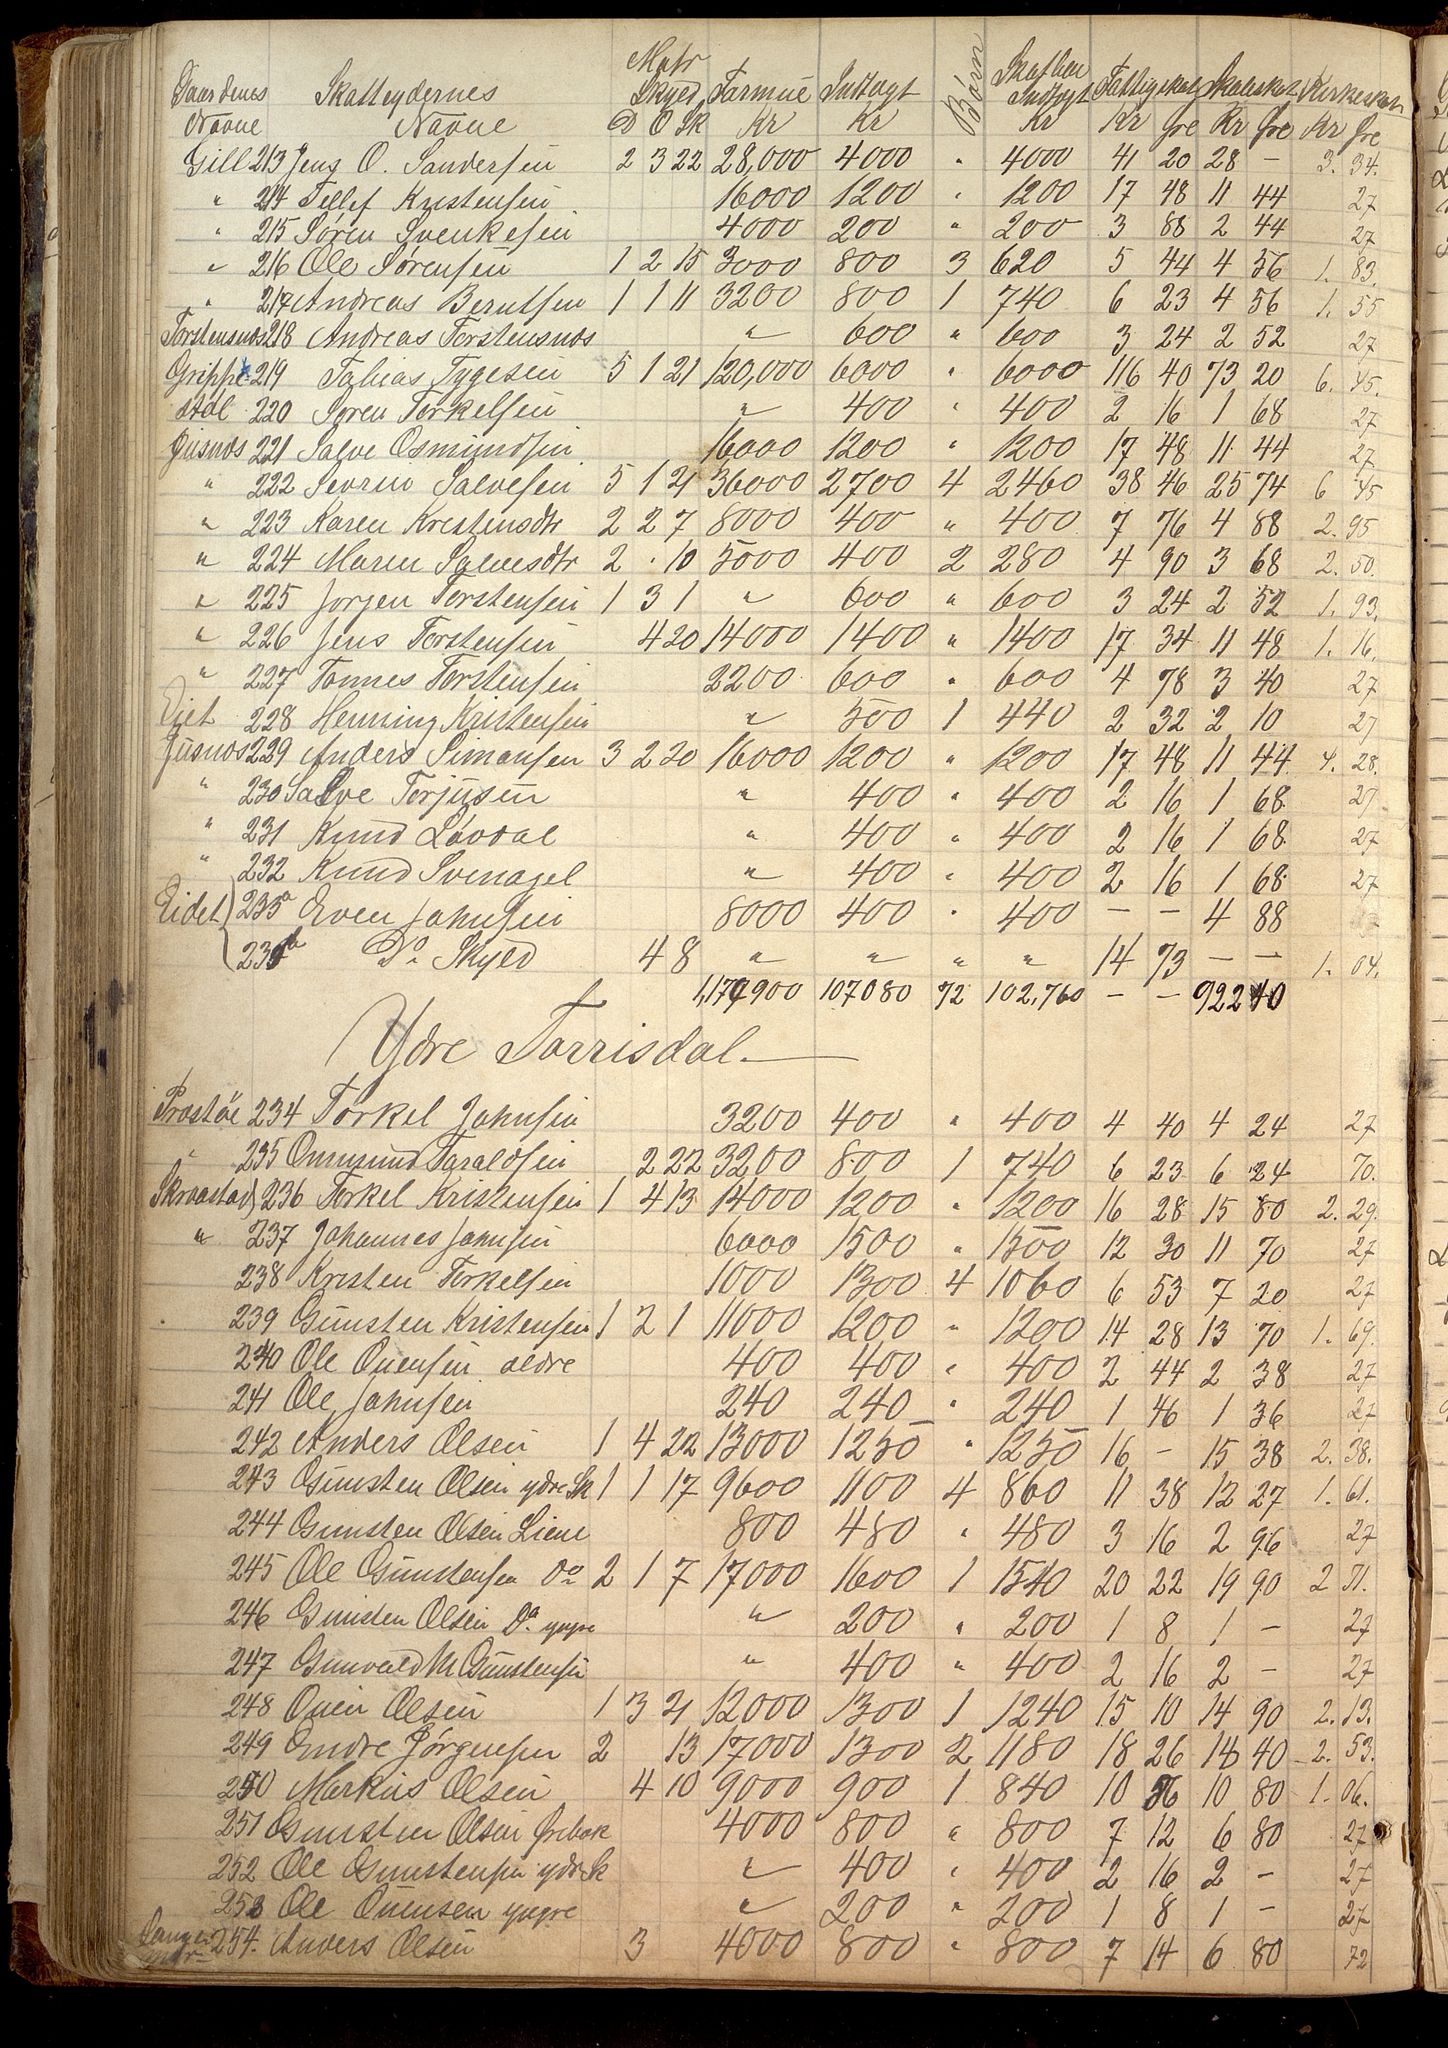 Gaardenes Skatteydernes Matr Skyld Formue Indtægt Børn Skatbar Indtægt Fattigskat Skoleskat Kirkeskat
Navne Navne D O Sk Kr Kr Kr Kr Øre Kr Øre Kr Øre
Gill 213 Jens O. Sandersen 2 3 22 28,000 4000 " 4000 41 20 28 – 3. 34.
" 214 Tellef Kristensen 16000 1200 " 1200 17 48 11 44 27
" 215 Søren Svenkesen 4000 200 " 200 3 88 2 44 27
" 216 Ole Sørensen 1 2 15 3000 800 3 620 5 44 4 56 1. 83.
" 217 Andreas Berntsen 1 1 11 3200 800 1 740 6 23 4 56 1. 55
Torstensnæs 218 Andreas Torstensnæs " 600 " 600 3 24 2 52 27
Grippe- 219 Tobias Tygesen 5 1 21 120,000 6000 " 6000 116 40 73 20 6. 45.
støl 220 Søren Torkelsen " 400 " 400 2 16 1 68 27
Jusnæs 221 Salve Osmundsen 16000 1200 " 1200 17 48 11 44 27
" 222 Severin Salvesen 5 1 21 36000 2700 4 2460 38 46 25 74 6 45
" 223 Karen Kristensdtr 2 2 7 8000 400 " 400 7 76 4 88 2. 95
" 224 Maren Salvesdtr 2 . 10 5000 400 2 280 4 90 3 68 2. 50.
" 225 Jørgen Torstensen 1 3 1 " 600 " 600 3 24 2 52 1. 93.
" 226 Jens Torstensen 4 20 14000 1400 " 1400 17 34 11 48 1. 16.
" 227 Tønnes Torstensen 2200 600 " 600 4 78 3 40 27
Eiet 228 Henning Kristensen " 500 1 440 2 32 2 10 27
Jusnæs 229 Anders Simonsen 3 2 20 16000 1200 " 1200 17 48 11 44 4. 28.
" 230 Salve Torjusen " 400 " 400 2 16 1 68 27
" 231 Knud Løvdal " 400 " 400 2 16 1 68 27
" 232 Knud Svenagel " 400 " 400 2 16 1 68 27
Eidet 233a Even Jahnsen 8000 400 " 400 – – 4 88
233b Do Skyld 4 8 " " " " 14 73 – – 1. 04.
1,174900 107080 72 102,760 – – 922 40
Ydre Torrisdal.
Prostøe 234 Torkel Jahnsen 3200 400 " 400 4 40 4 24 27
" 235 Ommund Taraldsen 2 22 3200 800 1 740 6 23 6 24 70.
Skraastad 236 Torkel Kristensen 1 4 13 14000 1200 " 1200 16 28 15 80 2. 29.
" 237 Johannes Jahnsen 6000 1500 " 1500 12 30 11 70 27
238 Kristen Torkelsen 1000 1300 4 1060 6 53 7 20 27
239 Gunsten Kristensen 1 2 1 11000 1200 " 1200 14 28 13 70 1. 69.
240 Ole Ouensen ældre 400 400 " 400 2 44 2 38 27
241 Ole Jahnsen 240 240 " 240 1 46 1 36 27
242 Anders Olsen 1 4 22 13000 1250 " 1250 16 – 15 38 2. 38.
243 Gunsten Olsen ydre Sk 1 1 17 9600 1100 4 860 11 38 12 27 1. 61.
244 Gunsten Olsen Liene 800 480 " 480 3 16 2 96 27
245 Ole Gunstensen Do 2 1 7 17000 1600 1 1540 20 22 19 90 2 71.
246 Gunsten Olsen Do yngre " 200 " 200 1 8 1 – 27
247 Gunvald M Gunstensen " 400 " 400 2 16 2 – 27
248 Ouen Olsen 1 3 21 12000 1300 1 1240 15 10 14 90 2. 13.
249 Endre Jørgensen 2 13 17000 1300 2 1180 18 26 18 40 2. 53.
250 Markus Olsen 4 10 9000 900 1 840 10 56 10 80 1. 06.
251 Gunsten Olsen Ørebæk 4000 800 " 800 7 12 6 80 27
252 Ole Gunstensen ydre Sk " 400 " 400 2 16 2 – 27
253 Ole Ouensen yngre " 200 " 200 1 8 1 – 27
254. Anders Olsen 3 4000 800 " 800 7 14 6 80 72